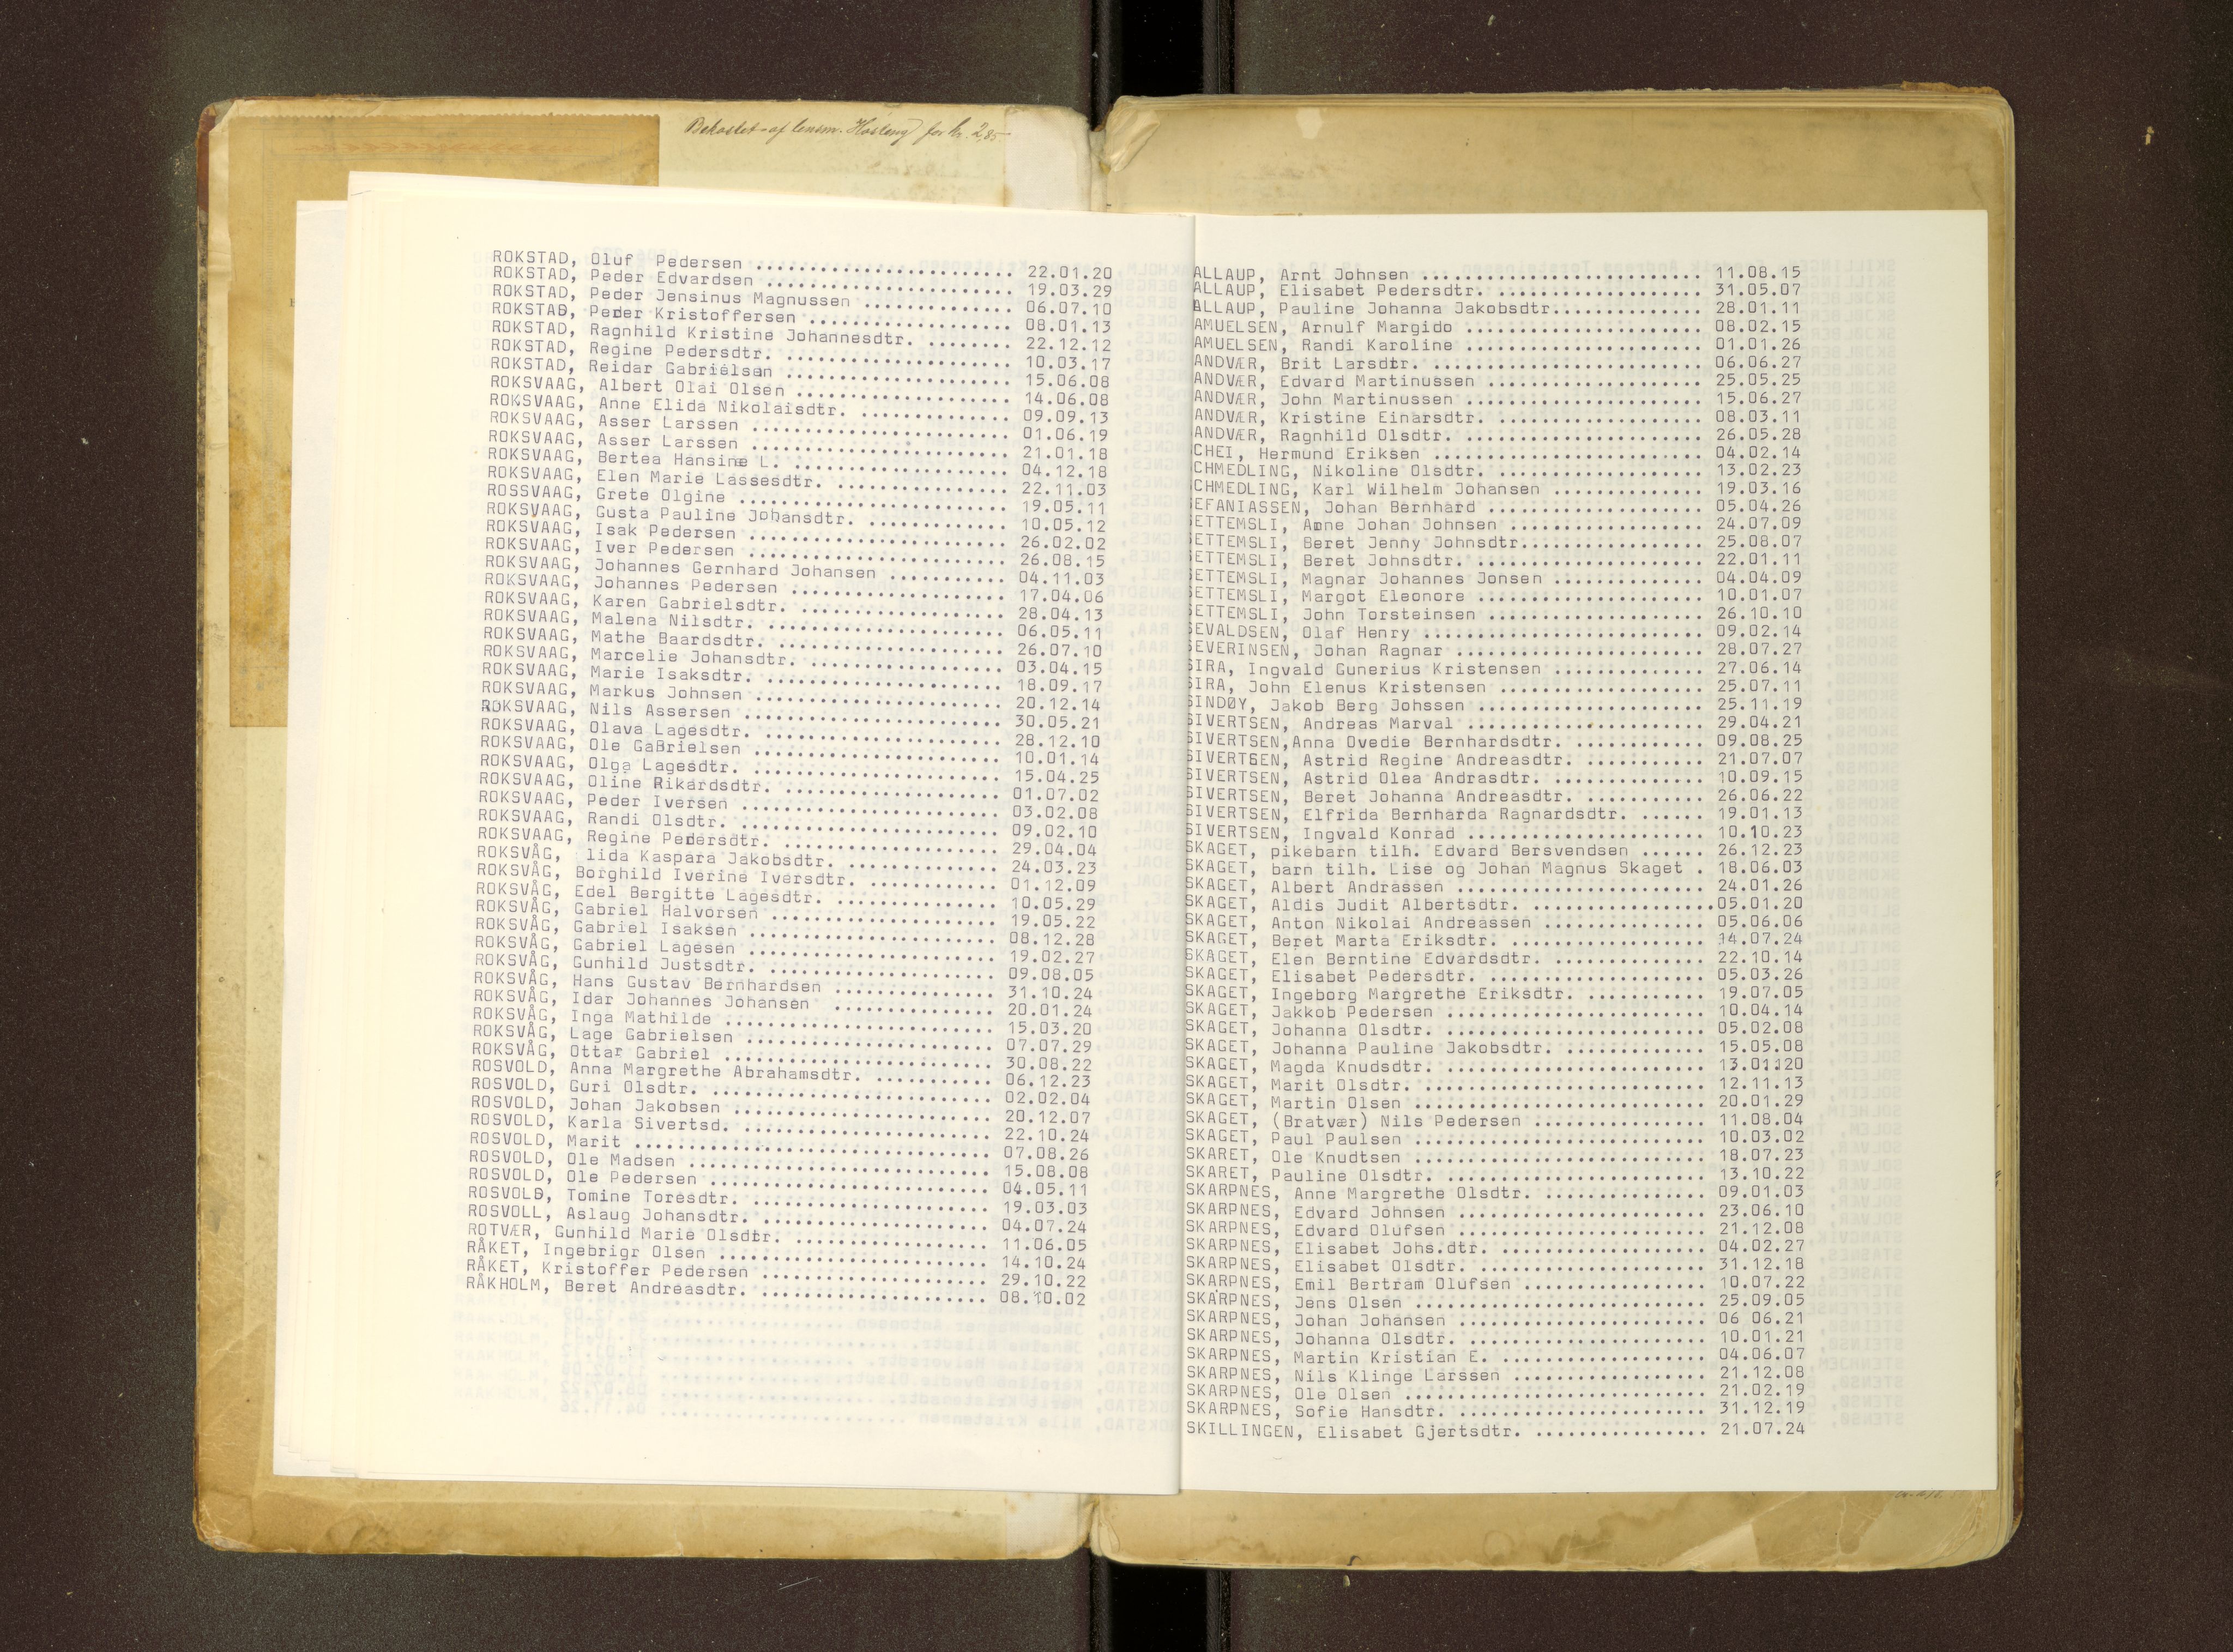 Bekostet af lensm. Hosleng for kr. 2,85
ROKSTAD, Oluf Pedersen .......................... 22.01.20
ROKSTAD, Peder Edvardsen ......................... 19.03.29
ROKSTAD, Peder Jensinus Magnussen ............... 06.07.10
ROKSTAD, Peder Kristoffersen ..................... 08.01.13
ROKSTAD, Ragnhild Kristine Johannesdtr. ........ 22.12.12
ROKSTAD, Regine Pedersdtr. ....................... 10.03.17
ROKSTAD, Reidar Gabrielsen ....................... 15.06.08
ROKSVAAG, Albert Olai Olsen ...................... 14.06.08
ROKSVAAG, Anne Elida Nikolaisdtr. ............... 09.09.13
ROKSVAAG, Asser Larssen .......................... 01.06.19
ROKSVAAG, Asser Larssen .......................... 21.01.18
ROKSVAAG, Bertea Hansine L. ...................... 04.12.18
ROKSVAAG, Elen Marie Lassesdtr. ................. 22.11.03
ROSSVAAG, Grete Olgine ........................... 19.05.11
ROKSVAAG, Gusta Pauline Johansdtr. .............. 10.05.12
ROKSVAAG, Isak Pedersen .......................... 26.02.02
ROKSVAAG, Iver Pedersen .......................... 26.08.15
ROKSVAAG, Johannes Gernhard Johansen ........... 04.11.03
ROKSVAAG, Johannes Pedersen ...................... 17.04.06
ROKSVAAG, Karen Gabrielsdtr. ..................... 28.04.13
ROKSVAAG, Malena Nilsdtr. ........................ 06.05.11
ROKSVAAG, Mathe Baardsdtr. ....................... 26.07.10
ROKSVAAG, Marcelie Johansdtr. ................... 03.04.15
ROKSVAAG, Marie Isaksdtr. ........................ 18.09.17
ROKSVAAG, Markus Johnsen ......................... 20.12.14
ROKSVAAG, Nils Assersen .......................... 30.05.21
ROKSVAAG, Olava Lagesdtr. ........................ 28.12.10
ROKSVAAG, Ole GaBrielsen ......................... 10.01.14
ROKSVAAG, Olga Lagesdtr. ......................... 15.04.25
ROKSVAAG, Oline Rikardsdtr. ...................... 01.07.02
ROKSVAAG, Peder Iversen .......................... 03.02.08
ROKSVAAG, Randi Olsdtr. .......................... 09.02.10
ROKSVAAG, Regine Pedersdtr. ...................... 29.04.04
ROKSVÅG, lida Kaspara Jakobsdtr. ............... 24.03.23
ROKSVÅG, Borghild Iverine Iversdtr. ............. 01.12.09
ROKSVÅG, Edel Bergitte Lagesdtr. ................ 10.05.29
ROKSVÅG, Gabriel Halvorsen ....................... 19.05.22
ROKSVÅG, Gabriel Isaksen ......................... 08.12.28
ROKSVÅG, Gabriel Lagesen ......................... 19.02.27
ROKSVÅG, Gunhild Justsdtr. ....................... 09.08.05
ROKSVÅG, Hans Gustav Bernhardsen ................ 31.10.24
ROKSVÅG, Idar Johannes Johansen ................ 20.01.24
ROKSVÅG, Inga Mathilde ........................... 15.03.20
ROKSVÅG, Lage Gabrielsen ......................... 07.07.29
ROKSVÅG, Ottar Gabriel ........................... 30.08.22
ROSVOLD, Anna Margrethe Abrahamsdtr. ............ 06.12.23
ROSVOLD, Guri Olsdtr. ............................ 02.02.04
ROSVOLD, Johan Jakobsen .......................... 20.12.07
ROSVOLD, Karla Sivertsd. ......................... 22.10.24
ROSVOLD, Marit ................................... 07.08.26
ROSVOLD, Ole Madsen .............................. 15.08.08
ROSVOLD, Ole Pedersen ............................ 04.05.11
ROSVOLD, Tomine Toresdtr. ........................ 19.03.03
ROSVOLL, Aslaug Johansdtr. ....................... 04.07.24
ROTVÆR, Gunhild Marie Olsdtr. ................... 11.06.05
RÅKET, Ingebrigr Olsen ........................... 14.10.24
RÅKET, Kristoffer Pedersen ....................... 29.10.22
RÅKHOLM, Beret Andreasdtr. ....................... 08.10.02
ALLAUP, Arnt Johnsen ............................ 11.08.15
ALLAUP, Elisabet Pedersdtr. ..................... 31.05.07
ALLAUP, Pauline Johanna Jakobsdtr............... 28.01.11
AMUELSEN, Arnulf Margido ........................ 08.02.15
AMUELSEN, Randi Karoline ........................ 01.01.26
ANDVÆR, Brit Larsdtr. ........................... 06.06.27
ANDVÆR, Edvard Martinussen ...................... 25.05.25
ANDVÆR, John Martinussen ........................ 15.06.27
ANDVÆR, Kristine Einarsdtr. ..................... 08.03.11
ANDVÆR, Ragnhild Olsdtr. ........................ 26.05.28
CHEI, Hermund Eriksen ........................... 04.02.14
CHMEDLING, Nikoline Olsdtr. ..................... 13.02.23
CHMEDLING, Karl Wilhelm Johansen ............... 19.03.16
EFANIASSEN, Johan Bernhard ...................... 05.04.26
ETTEMSLI, Anne Johan Johnsen .................... 24.07.09
ETTEMSLI, Beret Jenny Johnsdtr.................. 25.08.07
ETTEMSLI, Beret Johnsdtr. ....................... 22.01.11
SETTEMSLI, Magnar Johannes Jonsen ............... 04.04.09
SETTEMSLI, Margot Eleonore ...................... 10.01.07
SETTEMSLI, John Torsteinsen ..................... 26.10.10
SEVALDSEN, Olaf Henry ........................... 09.02.14
SEVERINSEN, Johan Ragnar ........................ 28.07.27
SIRA, Ingvald Gunerius Kristensen .............. 27.06.14
SIRA, John Elenus Kristensen .................... 25.07.11
SINDØY, Jakob Berg Johssen ...................... 25.11.19
SIVERTSEN, Andreas Marval ....................... 29.04.21
SIVERTSEN,Anna Ovedie Bernhardsdtr. ............ 09.08.25
SIVERTSEN, Astrid Regine Andreasdtr. ........... 21.07.07
SIVERTSEN, Astrid Olea Andrasdtr. .............. 10.09.15
SIVERTSEN, Beret Johanna Andreasdtr. ........... 26.06.22
SIVERTSEN, Elfrida Bernharda Ragnardsdtr. ...... 19.01.13
SIVERTSEN, Ingvald Konrad ....................... 10.10.23
SKAGET, pikebarn tilh. Edvard Bersvendsen ...... 26.12.23
SKAGET, barn tilh. Lise og Johan Magnus Skaget . 18.06.03
SKAGET, Albert Andrassen ........................ 24.01.26
SKAGET, Aldis Judit Albertsdtr. .................05.01.20
SKAGET, Anton Nikolai Andreassen ............... 05.06.06
SKAGET, Beret Marta Eriksdtr. ................... 14.07.24
SKAGET, Elen Berntine Edvardsdtr. .............. 22.10.14
SKAGET, Elisabet Pedersdtr. ..................... 05.03.26
SKAGET, Ingeborg Margrethe Eriksdtr. ........... 19.07.05
SKAGET, Jakkob Pedersen ......................... 10.04.14
SKAGET, Johanna Olsdtr. ......................... 05.02.08
SKAGET, Johanna Pauline Jakobsdtr. ............. 15.05.08
SKAGET, Magda Knudsdtr. ......................... 13.01120
SKAGET, Marit Olsdtr. ........................... 12.11.13
SKAGET, Martin Olsen ............................ 20.01.29
SKAGET, (Bratvær) Nils Pedersen ................ 11.08.04
SKAGET, Paul Paulsen ............................ 10.03.02
SKARET, Ole Knudtsen ............................ 18.07.23
SKARET, Pauline Olsdtr. ......................... 13.10.22
SKARPNES, Anne Margrethe Olsdtr. ............... 09.01.03
SKARPNES, Edvard Johnsen ........................ 23.06.10
SKARPNES, Edvard Olufsen ........................ 21.12.08
SKARPNES, Elisabet Johs.dtr. .................... 04.02.27
SKARPNES, Elisabet Olsdtr. ...................... 31.12.18
SKARPNES, Emil Bertram Olufsen .................. 10.07.22
SKARPNES, Jens Olsen ............................ 25.09.05
SKARPNES, Johan Johansen ........................ 06 06.21
SKARPNES, Johanna Olsdtr. ....................... 10.01.21
SKARPNES, Martin Kristian E. .................... 04.06.07
SKARPNES, Nils Klinge Larssen ................... 21.12.08
SKARPNES, Ole Olsen ............................. 21.02.19
SKARPNES, Sofie Hansdtr. ........................ 31.12.19
SKILLINGEN, Elisabet Gjertsdtr. ................ 21.07.24